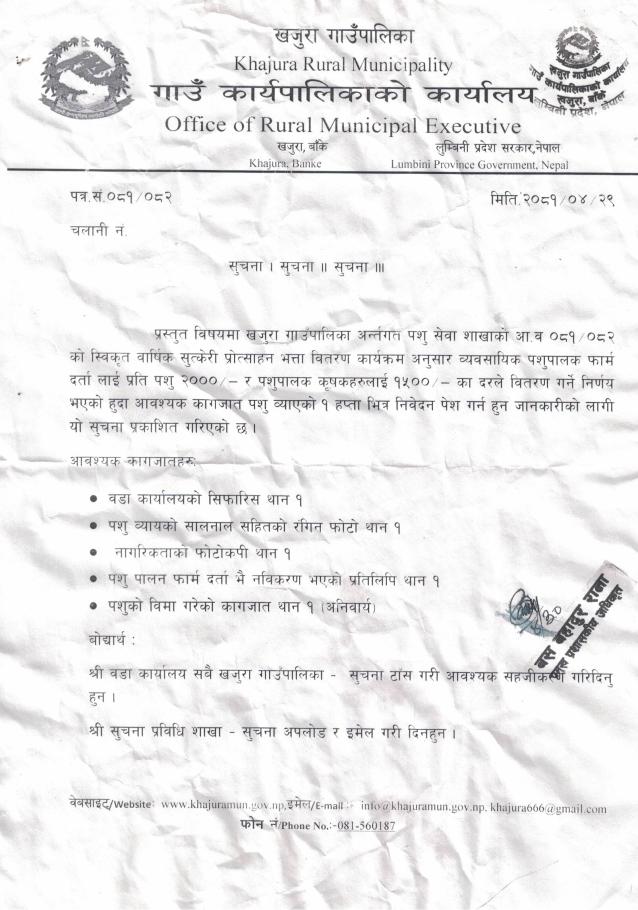 खजुरा गाउँपालिका
Khajura Rural Municipality
गाउँ कार्यपालिकाको कार्यालय
Office of Rural Municipal Executive
खजुरा, बाँके लुम्बिनी प्रदेश सरकार,नेपाल
Khajura, Banke Lumbini Province Government, Nepal
खजुरा गाउँपालिका
गाउँ कार्यपालिकाको कार्यालय
खजुरा, बाँके
लुम्बिनी प्रदेश, नेपाल
पत्र.सं.०८१/०८२ मिति.२०८१/०४/२९
चलानी नं.
सुचना । सुचना ॥ सुचना ॥।
प्रस्तुत विषयमा खजुरा गाउँपालिका अर्न्तगत पशु सेवा शाखाको आ.व ०८१/०८२
को स्विकृत वार्षिक सुत्केरी प्रोत्साहन भत्ता वितरण कार्यक्रम अनुसार व्यवसायिक पशुपालक फार्म
दर्ता लाई प्रति पशु २०००/- र पशुपालक कृषकहरुलाई १५००/- का दरले वितरण गर्ने निर्णय
भएको हुदा आवश्यक कागजात पशु व्याएको १ हप्ता भित्र निवेदन पेश गर्न हुन जानकारीको लागी
यो सुचना प्रकाशित गरिएको छ ।
आवश्यक कागजातहरुः
● वडा कार्यालयको सिफारिस थान १
● पशु व्यायको सालनाल सहितको रंगित फोटो थान १
● नागरिकताको फोटोकपी थान १
● पशु पालन फार्म दर्ता भै नविकरण भएको प्रतिलिपि थान १
● पशुको विमा गरेको कागजात थान १ (अनिवार्य)
बोद्यार्थ :
श्री वडा कार्यालय सबै खजुरा गाउँपालिका - सुचना टाँस गरी आवश्यक सहजीकरण गरिदिनु
हुन ।
श्री सुचना प्रविधि शाखा - सुचना अपलोड र इमेल गरी दिनहुन ।
वेबसाइट/Website: www.khajuramun.gov.np,इमेल/E-mail :- info@khajuramun.gov.np, khajura666@gmail.com
फोन नं/Phone No.:-081-560187